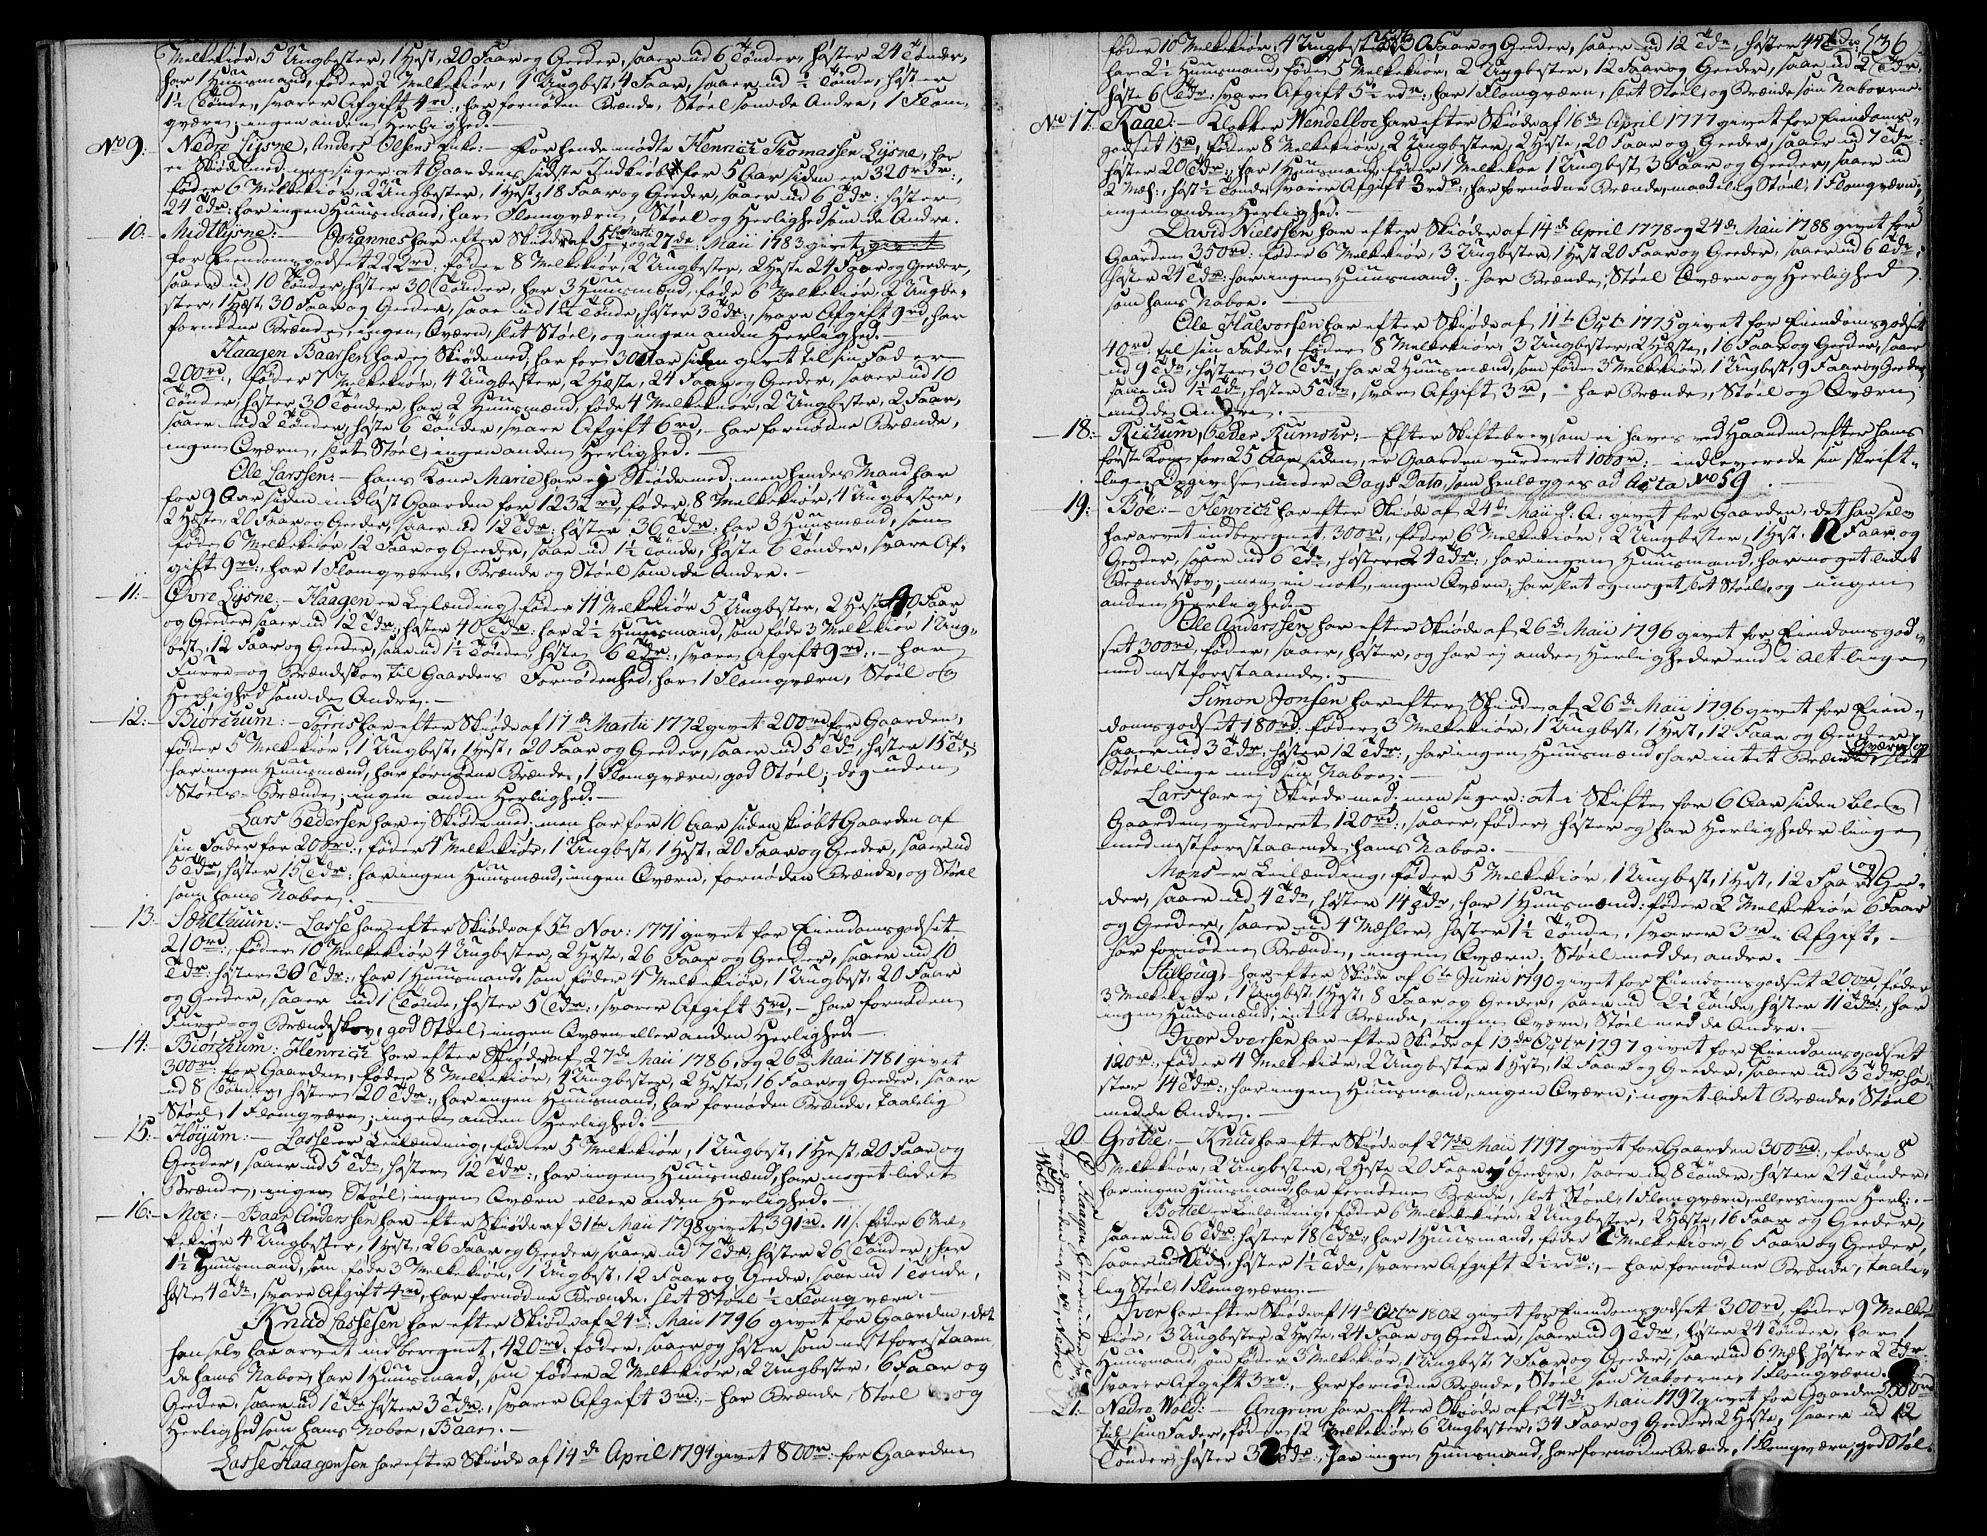 Melkekiör, 5 Ungbester, 1 Hest, 20 Faar og Geeder, saaer ud 6 Tönder, höster 24 Tönder,
har 1 Huusmand, föder 2 Melkekiör, 1 Ungbest, 4 Faar, saaer ud ½ Tönde, höster
1½ Tönde, svarer Afgift 4rd, har fornöden Brænde, Støel som de Andre, 1 Flom-
qværn; ingen anden Herlighed.
No 9. Nedre Lysne, Anders Olsens Enke: For hende mödte Henrich Thomassen Lysne, har
ei Skiöde med, men siger at Gaardens sidste Indkiöb for 5 Aar siden er 320rdr:,
föder 6 Melkekiör, 2 Ungbester, 1 Hest, 18 Faar og Geeder, saaer ud 6 Tdr: höster
24 Tdr: har ingen Huusmand, har Flomqværn, Støel og Herlighed som de Andre.
10. Midtlysne: Johannes har efter Skiöde af 5te Martii og 27de Maii 1783 givet givet
for Eiendomsgodset 222rd: föder 8 Melkekiör, 2 Ungbester, 2 Heste 24 Faar og Geeder,
saaer ud 10 Tönder, höster 30 Tönder, har 3 Huusmænd, föde 6 Melkekiör, 2 Ungbe-
ster, 1 Hæst, 30 Faar og Geeder, saae ud 1½ Tönde, höster 3 Tdr:, svare Afgift 9rd, har
fornödne Brænde, ingen Qværn, slet Støel, og ingen anden Herlighed.
Haagen Baarsen har ej Skiöde med, har for 30 Aar siden givet til sin Fader
200rd:, föder 7 Melkekiör, 4 Ungbester, 2 Hæste, 24 Faar og Geeder, saaer ud 10
Tönder, höster 30 Tönder, har 2 Huusmænd, föde 4 Melkekiör, 2 Ungbester, 2 Faar,
saaer ud 2 Tönder, höste 6 Tönder, svare Afgift 6rd, har fornödne Brænde,
ingen Qværn, slet Støel, ingen anden Herlighed.
Ole Larssen: hans Kone Marie har ej Skiöde med; men hendes Mand har
for 9 Aar siden indlöst Gaarden for 1232rd, föder 8 Melkekiör, 4 Ungbester,
2 Hæster, 20 Faar og Geeder, saaer ud 12 Tdr: höster 36 Tdr: har 3 Huusmænd, som
föde 6 Melkekiör, 12 Faar og Geeder, saae ud 1½ Tönde, höste 6 Tönder, svare Af-
gift 9rd:, har 1 Flomqværn, Brænde og Støel som de Andre.
11. Øvre Lysne, Haagen er Leilænding, föder 11 Melkekiör 5 Ungbester, 2 Heste 40 Faar
og Geeder, saaer ud 12 Tdr:, höster 40 Tdr: har 2½ Huusmand, som föde 3 Melkekiör 1 Ung-
best, 12 Faar og Geeder, saae ud 1½ Tönde, höste 6 Tdr:, svare Afgift 9rd:, har
Furre- og Brændeskov til Gaardens Fornödenhed, har 1 Flomqværn, Støel og
Herlighed som de Andre.
12. Biörchum: Joris har efter Skiöde af 17de Martii 1772 givet 200rd for Gaarden,
föder 5 Melkekiör, 1 Ungbest, 1 Hest, 20 Faar og Geeder, saaer ud 5 Tdr, höster 15 Tdr
har ingen Huusmænd, har fornödne Brænde, 1 Flomqværn, god Støel; dog uden
Støels-Brænde; ingen anden Herlighed.
Lars Pedersen har ej Skiöde med; men har for 10 Aar siden kiöbt Gaarden af
sin Fader for 200rd:, föder 4 Melkekiör, 1 Ungbest, 1 Hest, 20 Faar og Geeder, saaer ud
5 Tdr, höster 15 Tdr: har ingen Huusmænd, ingen Qværn, fornöden Brænde, og Støel
som hans Naboe.
13. Lasse har efter Skiöde af 5te Nov: 1771 givet for Eiendomsgodset
210rd: föder 10 Melkekiör 4 Ungbester, 2 Heste, 26 Faar og Geeder, saaer ud 10
Tdr: höster 30 Tdr: har 1 Huusmand, som föder 4 Melkekiör, 1 Ungbest, 20 Faar
og Geeder, saaer ud 1 Tönde, höster 5 Tdr:, svarer Afgift 5rd, har fornöden
Furre- og Brændeskov, god Støel, ingen Qværn eller anden Herlighed.
14. Biörchum: Henrich har efter Skiöder af 27de Maii 1786, og 26de Maii 1781 givet
300rd for Gaarden, föder 8 Melkekiör, 4 Ungbester, 2 Heste, 16 Faar og Geeder, saaer
ud 8 Tönder, höster 20 Tdr:, har ingen Huusmand, har fornöden Brænde, taalelig
Støel, 1 Flomqværn; ingen anden Herlighed.
15. Höyum: Lasse er Leilænding, föder 5 Melkekiör, 1 Ungbest, 1 Hest, 20 Faar og
Geeder, saaer ud 5 Tdr, höster 12 Tdr:, har ingen Huusmænd, har noget lidet
Brænde, ingen Støel, ingen Qværn eller anden Herlighed.
16. Moe: Baar Anderssen har efter Skiöde af 31te Maii 1798 givet 391rd. 11/: föder 6 Mel-
kekiör 4 Ungbester, 1 Hest, 26 Faar og Geeder, saaer ud 7 Tdr:, höster 26 Tönder, har
1½ Huusmand, som föde 3 Melkekiör, 1 Ungbest, 12 Faar og Geeder, saae ud 1 Tönde,
höste 4 Tdr, svare Afgift 4rd, har fornödne Brænde, slet Støel ½ Flomqværn.
Knud Lassesen har efter Skiöde af 24de Maii 1796 givet for Gaarden, det
han selv har arvet indberegnet, 420rd, föder, saaer og höster, som nestforestaaen-
de hans Naboe, har 1 Huusmand, som föder 2 Melkekiör, 2 Ungbester, 6 Faar og
Geeder, saaer ud 1 Tdr höster 3 Tdr:, svarer Afgift 3rd; har Brænde, Støel og
Herlighed som hans Naboe, Baar.
Lasse Haagensen har efter Skiöde af 14de April 1794 givet 800rd: for Gaarden
536
föder 10 Melkekiör, 4 Ungbester, 30 Faar og Geeder, saaer ud 12 Tdr, höster 44 Tdr:
har 2½ Huusmand, föde 5 Melkekiör, 2 Ungbester, 12 Faar og Geeder, saae ud 2 Tdr,
höste 6 Tdr: svare Afgift 5½rdr:, har 1 Flomqværn, slet Støel, og Brænde som Naboerne.
No 17. Klokker Wendelboe har efter Skiöde af 16de April 1777 givet for Eiendoms-
godset 15rd, föder 8 Melkekiör, 2 Ungbester, 2 Heste, 20 Faar og Geeder, saaer ud 7 Tdr:
höster 20 Tdr:, har 1 Huusmand, föder 1 Melkekoe 1 Ungbest, 3 Faar og Geeder, saaer ud
2 Mæl:, höst ½ Tönde, svarer Afgift 3rdr: har fornödne Brænde, maadelig Støel, 1 Flomqværn,
ingen anden Herlighed.
David Nielssen har efter Skiöder af 14de April 1778 og 24de Maii 1788 givet for
Gaarden 350rd: föder 6 Melkekiör, 3 Ungbester, 1 Hest 20 Faar og Geeder, saaer ud 6 Tdr:
höster 24 Tdr: har ingen Huusmand; har Brænde, Støel Qværn og Herlighed
som hans Naboe.
Ole Halvorsen har efter Skiöde af 11te Oct: 1775 givet for Eiendomsgodset
40rd til sin Fader, föder 8 Melkekiör, 3 Ungbester, 2 Hæste, 16 Faar og Geeder, saaer
ud 9 Tdr, höster 30 Tdr, har 2 Huusmænd, som föde 3 Melkekiör, 1 Ungbest, 9 Faar og Geeder
saae ud 1½ Tdr, höster 5 Tdr, svare Afgift 3rd, har Brænde, Støel og Qværn
med de Andre.
18. Peder Rumohr: Efter Skiftebrev som ei haves ved Haanden, efter hans
förste Kone for 25 Aar siden, er Gaarden vurderet 1000r: indleverede sin skrift-
lige Opgivelse under Dags Dato, som henlægges ad Acta No 59.
19. Böe: Henrich har efter Skiöde af 24de Maii h. A. givet for Gaarden, det han selv
har arvet indberegnet, 300rd, föder 6 Melkekiör, 2 Ungbester, 1 Hest 12 Faar og
Geeder, saaer ud 6 Tdr, höster 24 Tdr:, har ingen Huusmand, har noget lidet
Brændeskov; men ei nok, ingen Qværn, har slet og meget let Støel, og ingen
anden Herlighed.
Ole Anderssen har efter Skiöde af 26de Maii 1796 givet for Eiendomsgod-
set 300rd, föder, saaer, höster, og har ej andre Herligheder end i Alt liigen
med nestforestaaende.
Simon Jonsen har efter Skiöde af 26de Maii 1796 givet for Eien-
domsgodset 180rd: föder 3 Melkekiör, 1 Ungbest, 1 Hest, 12 Faar og Geeder
saaer ud 3 Tdr: höster 12 Tdr:, har ingen Huusmænd, har intet Brænde, Qværn og slet
Støel liige med sin Naboe.
Lars har ej Skiöde med; men siger: at i Skifte for 6 Aar siden blev
Gaarden vurderet 120rd:, saaer, föder, höster og har Herligheder liigen
med nestforestaaende hans Naboe.
Mons er Leilænding, föder 5 Melkekiör, 1 Ungbest, 1 Hest, 12 Faar og Gee-
der, saaer ud 4 Tdr, höster 14 Tdr, har 1 Huusmand: föder 2 Melkekiör 6 Faar
og Geeder, saaer ud 4 Mæhler, höster 1½ Tönde, svarer 3rd i Afgift.
har fornödne Brænde, ingen Qværn, Støel med de andre.
har efter Skiöde af 6te Junii 1790 givet for Eiendomsgodset 200rd, föder
3 Melkekiör, 1 Ungbest, 1 Hest, 8 Faar og Geeder, saaer ud 2½ Tönde, höster 11 Tdr:, har
ingen Huusmænd, intet Brænde, ingen Qværn, Støel med de Andre.
Iver Iversen har efter Skiöde af 13de Octr 1797 givet for Eiendomsgodset
120rd, föder 4 Melkekiör, 2 Ungbester 1 Hest, 12 Faar og Geeder, saaer ud 3 Tdr, hö-
ster 14 Tdr:, har ingen Huusmand, ingen Qværn, noget lidet Brænde, Støel
med de Andre.
20. Grötte: Knud har efter Skiöde af 27de Maii 1797 givet for Gaarden 300rd, föder 8
Melkekiör, 2 Ungbester, 2 Heste 20 Faar og Geeder, saaer ud 8 Tönder, höster 24 Tönder,
har ingen Huusmand, har fornödne Brænde, slet Støel, 1 Flomqværn, ellers ingen Herl:.
Bottel er Leilænding, föder 6 Melkekiör, 2 Ungbester, 2 Hæste, 16 Faar og Geeder,
saaer ud 6 Tdr: höster 18 Tdr:, har 1 Huusmand, föder 2 Melkekiör, 6 Faar og Geeder,
saaer ud Tdr, höster 1½ Tdr, svarer Afgift 2½rdr:, har fornödne Brænde, taale-
lig Støel, 1 Flomqværn.
Iver har efter Skiöde af 14de Octr 1802 givet for Eiendomsgodset 300rd, föder 9 Melke-
kiör, 3 Ungbester, 2 Heste, 24 Faar og Geeder, saaer ud 9 Tdr, höster 24 Tönder, har 1
Huusmand, som föder 3 Melkekiör, 1 Ungbest 7 Faar og Geeder, saaer ud 6 Mæl: höster 2 Tdr:
svarer Afgift 3rd:, har fornödne Brænde, Støel som Naboerne, 1 Flomqværn.
Haagen hörer under
Gaarden neste No, Nedre
Wold.
1. Nedre Wold: Angrim har efter Skiöde af 24de Maii 1797 givet for Gaarden
til sin Fader, föder 12 Melkekiör, 6 Ungbester, 34 Faar og Geeder, 2 Heste, saaer ud 12
Tönder, höster Tdr:, har ingen Huusmand, har fornödne Brænde, 1 Flomqværn, god Støl